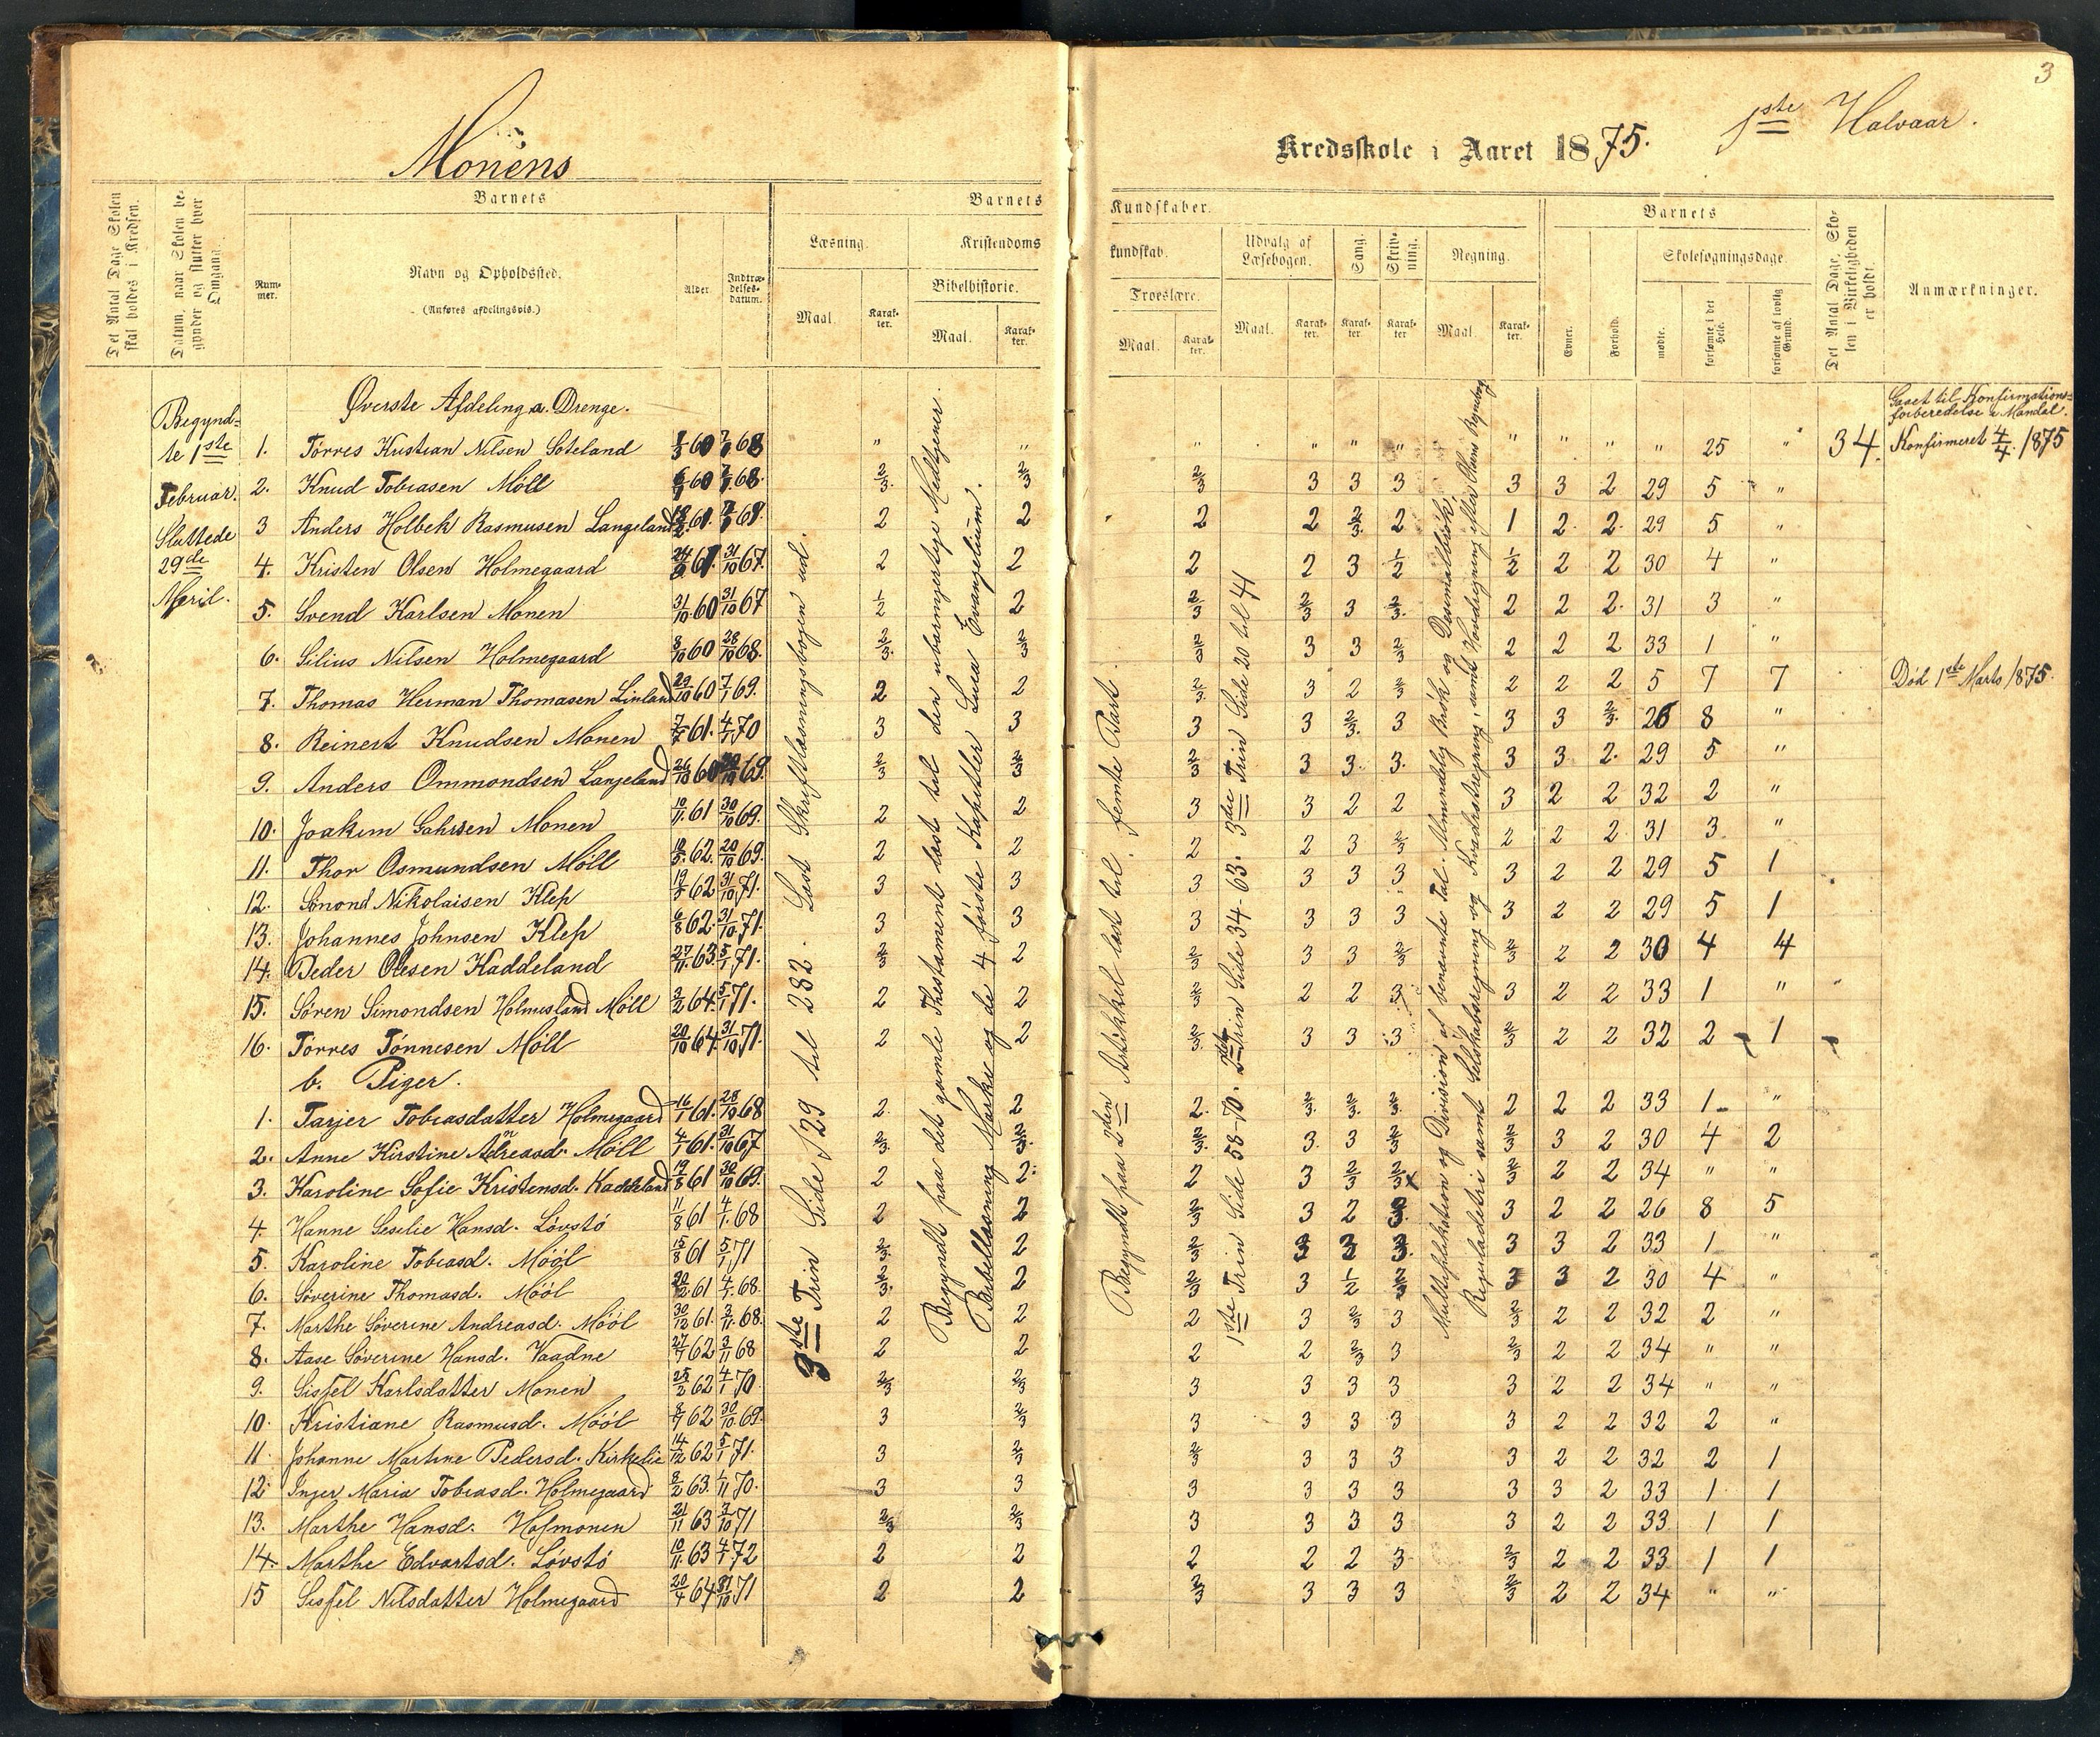 3
Monens Kredsskole i Aaret 1875. 1ste Halvaar.
Det Antal Dage Skolen skal holdes i Kredsen.
Datum, naar Skolen begynder og slutter hver Omgang.
Barnets
Nummer.
Navn og Opholdssted.
(Anføres afdelingsvis.)
Alder.
Indtrædelsesdatum.
Barnets Kundskaber.
Læsning.
Maal. Karakter.
Kristendomskundskab.
Bibelhistorie.
Maal. Karakter.
Troeslære.
Maal. Karakter.
Udvalg af Læsebogen.
Maal. Karakter.
Sang.
Karakter
Skrivning.
Karakter
Regning.
Maal Karakter.
Barnets
Evner. Forhold.
Skolesøgningsdage.
mødte. forsømte i det Hele. forsømte af lovlig Grund.
Det Antal Dage, Skolen i Virkeligheden er holdt.
Anmærkninger.
Begyndte 1ste Februar. Sluttede 29de April.
Øverste Afdeling a. Drenge.
Gaaet til Konfirmationsforberedelse i Mandal.
1. Tørres Kristian Nilsen Soteland 60 68 " " " " " " " " " 25 " 34. Konfirmeret 4/4. 1875
2. Knud Tobiasen Möll 60 68. 2/3. 2/3 2/3 3 3 3 3 3 2 29 5 "
3 Anders Holbek Rasmusen Langeland 61. 69. 2 2 2 2 2/3. 2 1 2. 2. 29 5 "
4. Kristen Olsen Holmegaard 61. 31/10 67. 2 2 2 2 3 1/2 1/2 2 2 30 4 "
5. Svend Karlsen Monen 31/10 60 31/10 67 1/2 2 2/3 2/3 3 2/3. 2 2 2. 31 3 "
6. Silius Nilsen Holmegaard 8/10 60 28/10 68. 2/3. 2/3 2/3 3 3 2/3 2 2 2 33 1 "
7. Thomas Herman Thomasen Linland 29/10 60 7/1 69. 2 2 2/3. 3 2 2/3 2 2 2 5 7 7 Död 1ste Marts 1875.
8. Reinert Knudsen Monen 7/7 61. 4/1 70 3 3 3 3 2/3. 3 3 3 2/3. 26 8 "
9. Anders Ommondsen Langeland 26/10 60 69. 2/3 2/3 2/3 3 3. 3. 3 3 2. 29 5 "
10. Joakim Monen 61 30/10 69. 2 2 3 3 2 2 3 2 2 32 2 "
11. Thor Osmundsen Möll 62. 20/10 69. 2 2 2 2 3 2/3 2 2 2 31 3 "
12. Nikolaisen Klep 62 31/10 71. 3 3 3 3 3 3 3 2 2 29 5 1
13. Johannes Johnsen Klep 6/8 62 31/10 71. 3 3 3 3 3 3 3 2 2 29 5 1
14. Peder Olesen Haddeland 27/11 63 5/1 71. 2/3 2 2/3 3 3 2/3 2/3 2 2 30 4 4
15. Søren Simondsen Holmesland Möll 3/2 64. 5/1 71. 2 2 2/3 2 2 3 3 2 2 33 1 "
16. Tørres Tönnesen Möll 20/10 64. 31/10 71. 2 2 2/3. 3 3 3 2/3 2 2 32 2 1
b. Piger.
1. Tarjer Tobiasdatter Holmegaard 16/1 61. 28/10 68 2. 2 2. 2/3. 2/3. 2/3. 2 2 2 33 1 "
2. Anne Kirstine Andreasd. Möll 4/1 61. 31/10 67 2/3. 2/3. 2/3. 3. 3 2/3 2/3 3 2 30 4 2
3. Karoline Sofie Kristensd. Haddeland 19/8 61 30/10 69. 2 2. 2 3 2/3 2/3 2/3 2 2 34 " "
4. Hanne Seselie Hansd. Lövstö 11/8 61 4/1. 68 2 2 2/3 3 2 3. 3 2 2 26 8 5
5. Karoline Tobiasd. Móól 15/8 61 5/1 71 2/3. 2 2/3 3 3 3. 3 3 2 33 1 "
6. Søverine Thomasd. Móól 61 4/1. 68. 2/3. 2 2/3 3 1/2 2/3 3 3 2 30 4 "
7. Marthe Søverine Andreasd. Móól 30/12 61. 3/11. 68. 2 2 2 3 2/3 3 2/3 2 2 32 2 "
8. Aase Søverine Hansd. Vaadne 27/7 62 3/11 68 2 2 2 2 2/3 3 2/3 2 2 34 " "
9. Sissel Karlsdatter Monen 25/2 62 4/1 70. 2/3 2/3 3 3 3 3 3 2 2 34 " "
10. Kristiane Rasmusd. Móól 8/7 62 30/10 69. 3 2/3 3 3 3 3 3 2 2 32 2 "
11. Johanne Martine Pedersd. Kirkelie 14/12 62 5/1 71. 3 2/3 2/3 3 3 3 3 2 2 32 2 1
12. Inger Maria Tobiasd. Holmegaard 8/2 63. 1/11 70. 3 3 3 3 3 3 3 3 2 33 1 1
13. Marthe Hansd. Hofmonen 21/11 63 3/10 71 2/3 2/3 3 3 3 3 3 2 2 33 1 1
14. Marthe Edvartsd. Lövstó 10/11. 63 4/1. 72 2 2 2 2 2 3 2/3 2 2 33 1 1
15 Sissel Nilsdatter Holmegaard 20/4 64 31/10 71 2 2 2/3 3 3 3 2/3 2 2 34 " "
3die Trin Side 129 til 232. Læst Skriftlæsningsbogen ud.
Begyndt paa det gamle Thestament læst til den ubarmjertige Medtjener.
Bibellæsning Marki og de 4 første Kapitler Luca Evangelium.
Begyndt paa 2den Artikkel læst til femte Part.
1ste Trin Side 58-70. 2det Trin Side 34-63. 3die Trin Side 20 til 41
Multiplikation og Division af benævnte Tal. Almindelig Brök og Desimalbrök.
Reguladetri samt Selskabsregning og Kvadratregning, samt Hovedregning efter Regnebog